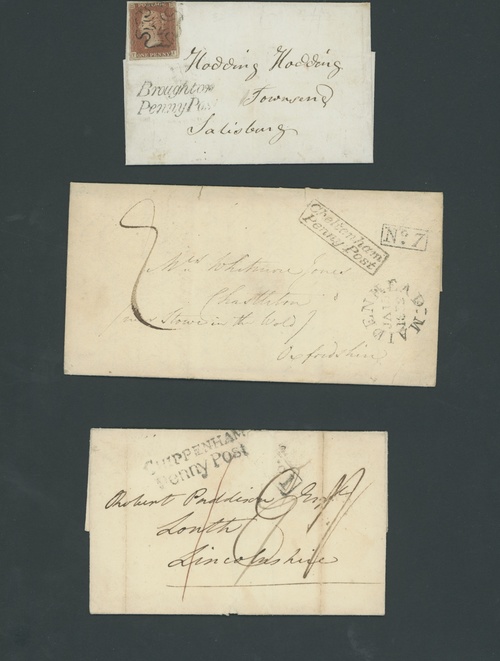 ONE PENNY
Broughton
Penny Post
Hodding Hodding
Townsend
Salisbury
Cheltenham
Penny Post
No. 7
2
Mrs Whitmore Jones
Chastleton
Stowe in the Wold
Oxfordshire
MAIDENHEAD
CHIPPENHAM
Penny Post
1
Robert Paddison Esqr
Louth
Lincolnshire